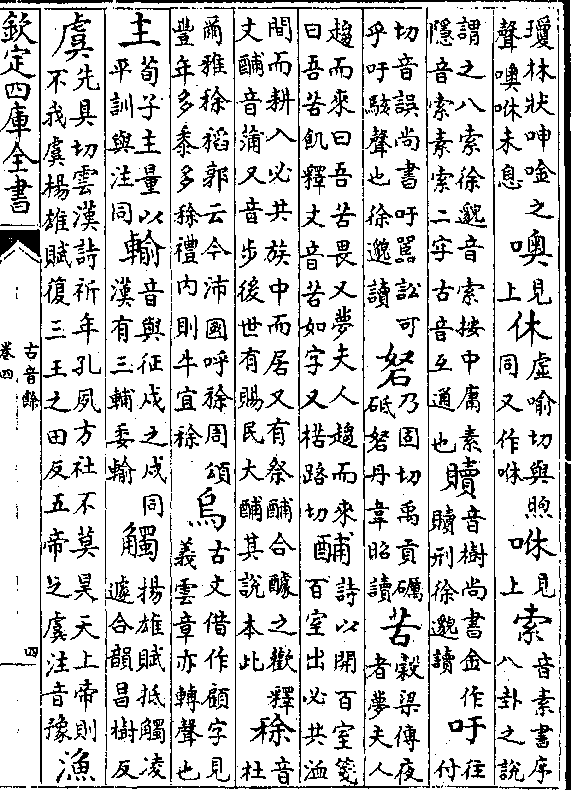 瓊林狀呻唫之聲噢咻未息噢見上休虛喻切與煦同又作咻咻見上索音素書序八卦之說
謂之八索徐邈音索按中庸素隱音索素索二字古音互通也贖音樹尚書金作贖刑徐邈讀吁往付
切音誤尚書吁嚚訟可乎吁駭聲也徐邈讀砮乃固切禹貢礪砥砮丹韋昭讀苦穀梁傳夜者夢夫人
趨而來曰吾苦畏又夢夫人趨而來曰吾苦飢釋文音苦如字又楛路切酺詩以開百室箋百室出必共洫
間而耕入必共族中而居又有祭酺合醵之歡釋文酺音蒲又音步後世有賜民大酺其說本此稌音杜
爾雅稌稻郭云今沛國呼稌周頌豐年多黍多稌禮內則牛宜稌烏古文借作顧字見義雲章亦轉聲也
主荀子主量以平訓與注同輸音與征戍之戍同漢有三輔委輸觸揚雄賦抵觸凌遽合韻昌樹反
虞先具切雲漢詩祈年孔夙方社不莫昊天上帝則不我虞楊雄賦復三王之田反五帝之虞注音豫漁
欽定四庫全書
古音餘
卷四
四